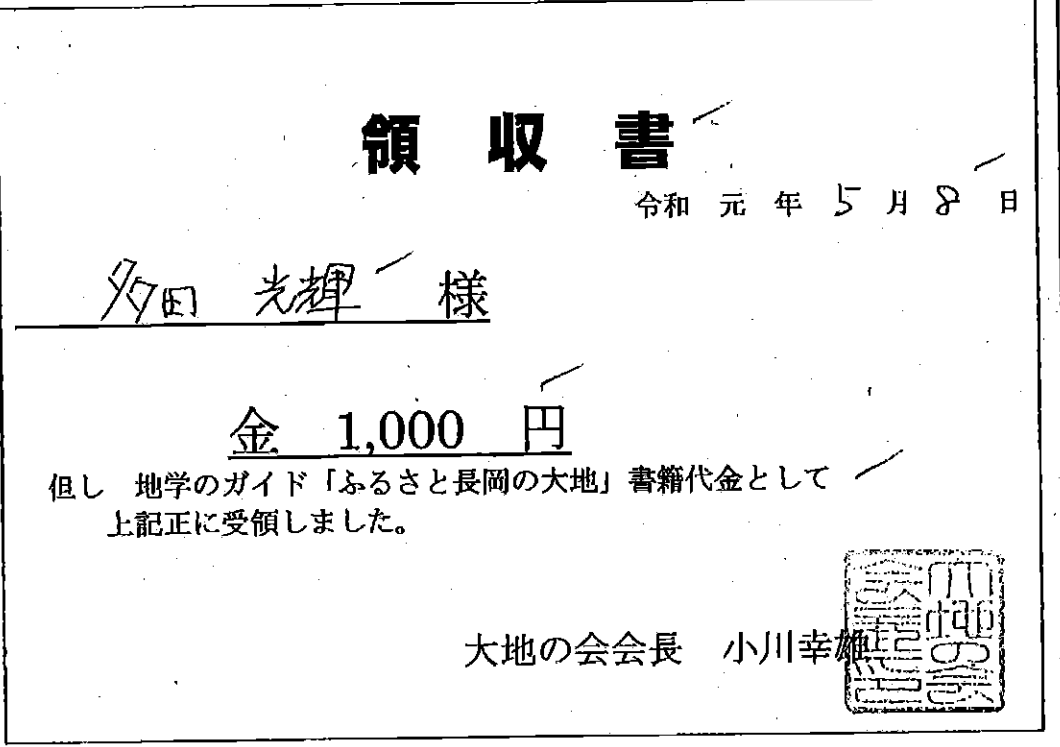 領収書
令和 元 年 5 月 8 日
多田 光輝 様
金 1,000 円
但し 地学のガイド「ふるさと長岡の大地」書籍代金として
上記正に受領しました。
大地の会会長 小川幸雄
大地の会